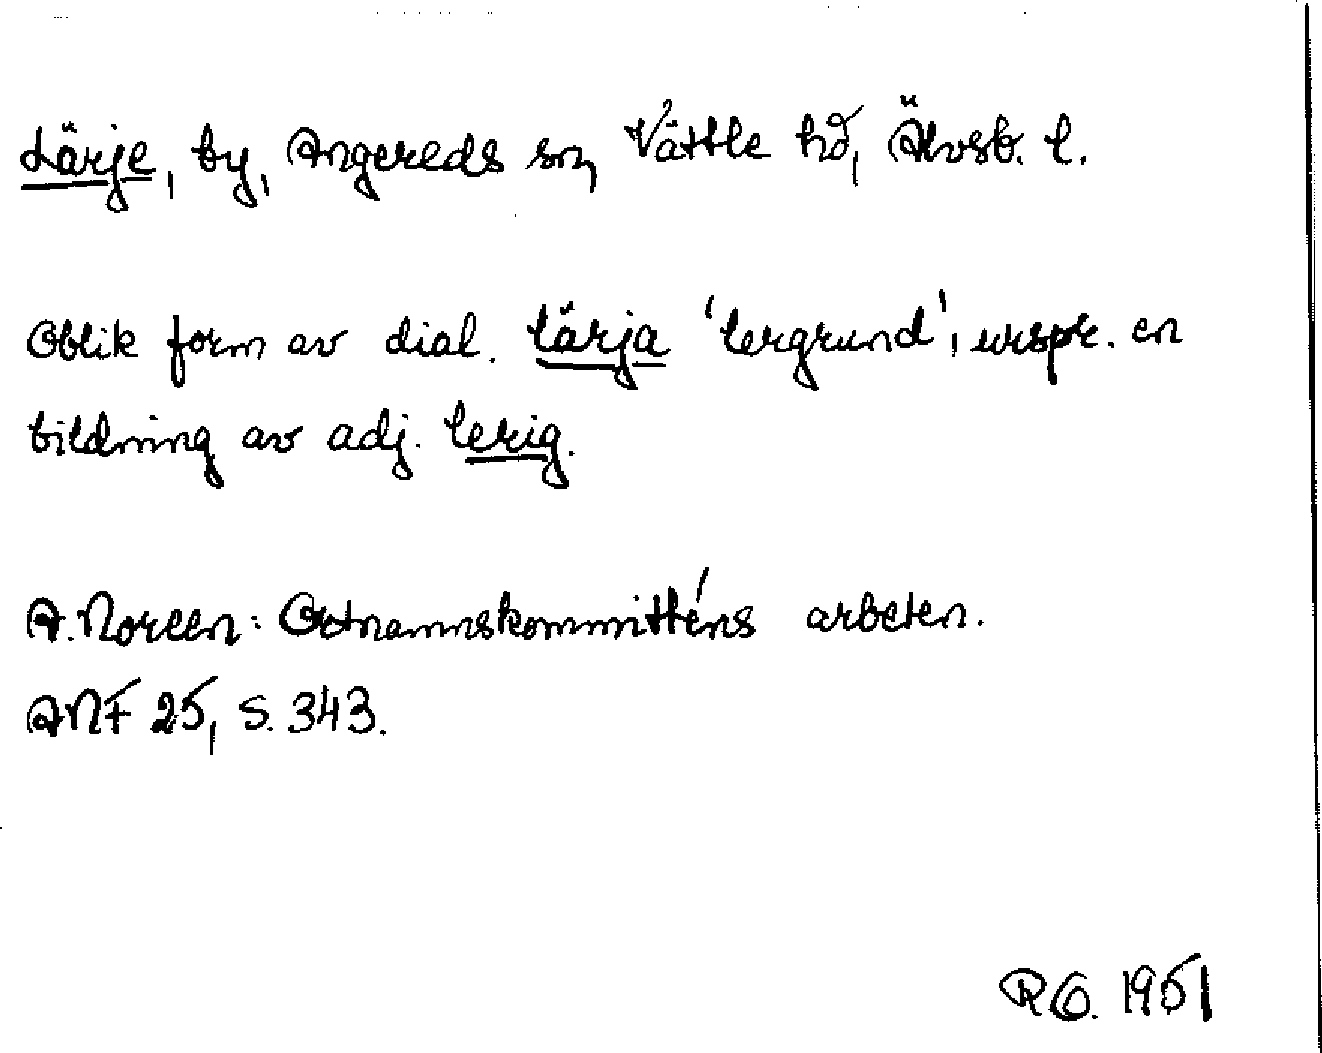 Lärje, by, Angereds sn, Vättle hd, Älvsb. l.
Oblik form av dial. lärja 'lergrund', urspr. en
bildning av adj. lerig.
A. Noreen: Ortnamnskommitténs arbeten.
ANF 25, s. 343.
R.G. 1951